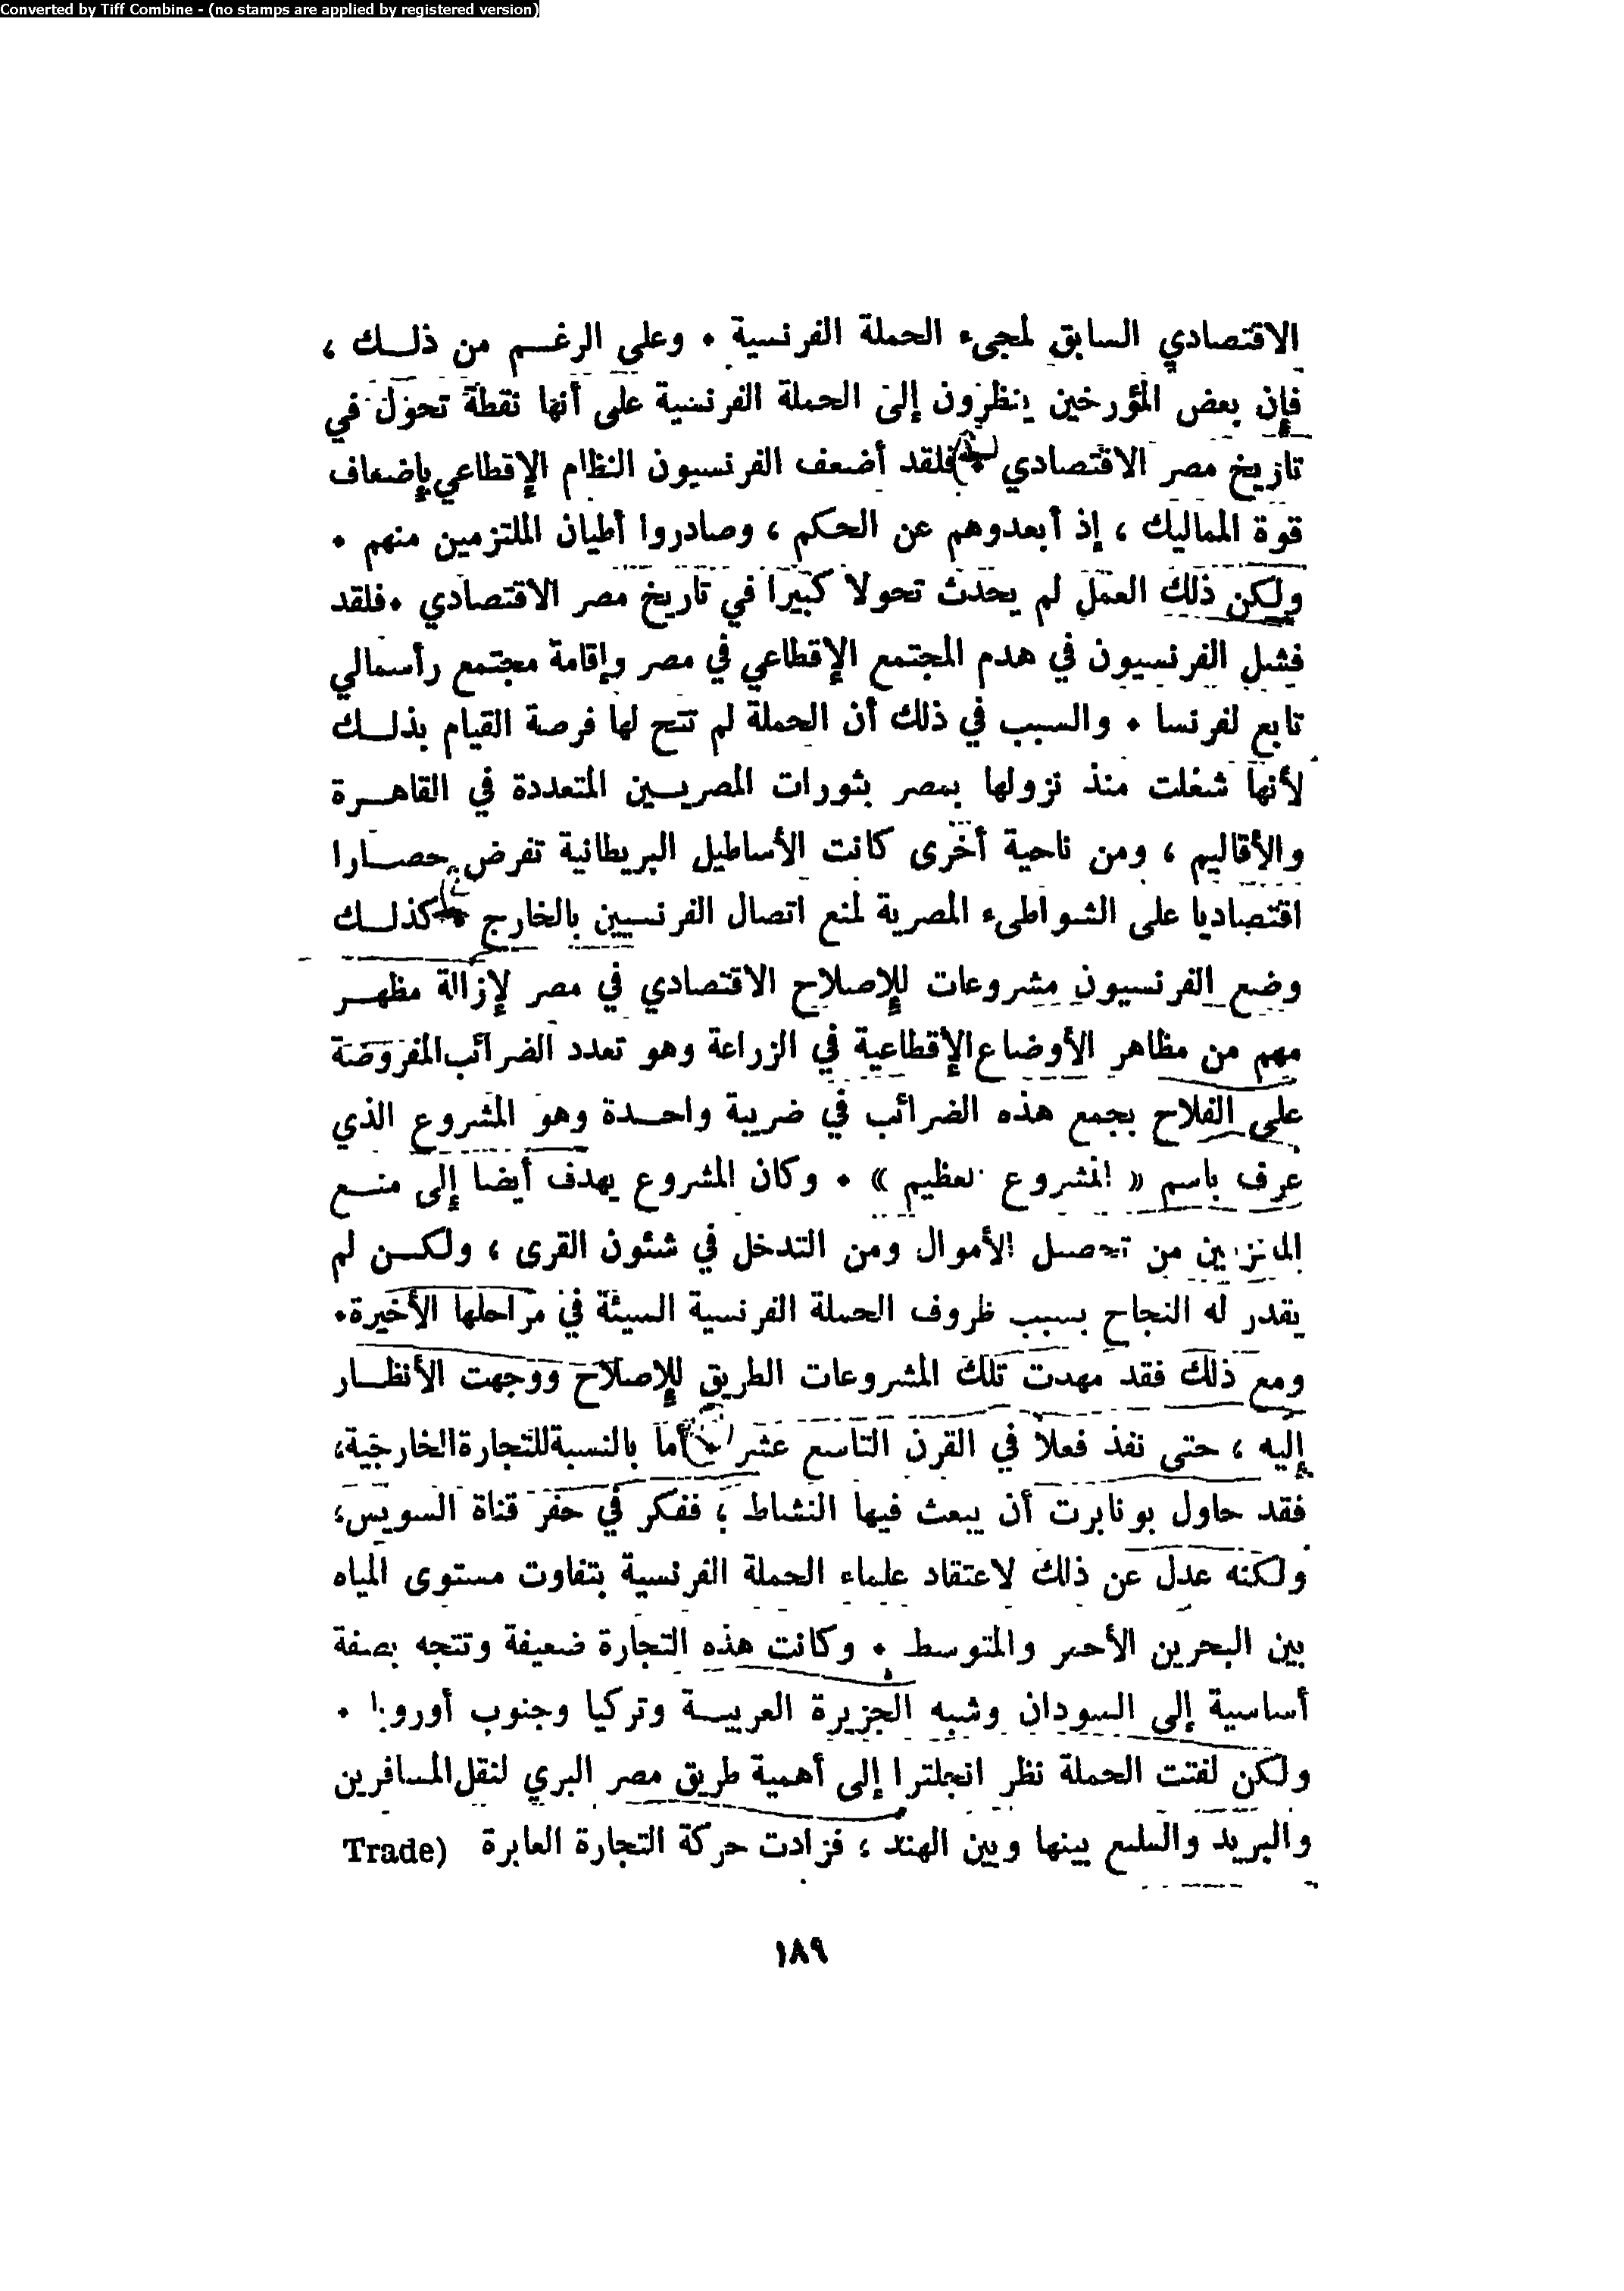 Converted by Tiff Combine - (no stamps are applied by registered version)
الاقتصادي السابق لمجىء الحملة الفرنسية . وعلى الرغـم من ذلـك ،
فإن بعض المؤرخين ينظرون إلى الحملة الفرنسية على أنها نقطة تحول في
تاريخ مصر الاقتصادي . فلقد أضعف الفرنسيون النظام الإقطاعي بإضعاف
قوة المماليك ، إذ أبعدوهم عن الحكم ، وصادروا أطيان الملتزمين منهم .
ولكن ذلك العمل لم يحدث تحولا كبيرا في تاريخ مصر الاقتصادي . فلقد
فشل الفرنسيون في هدم المجتمع الإقطاعي في مصر وإقامة مجتمع رأسمالي
تابع لفرنسا . والسبب في ذلك أن الحملة لم تتح لها فرصة القيام بذلـك
لأنها شغلت منذ نزولها بمصر بثورات المصريـين المتعددة في القاهـرة
والأقاليم ، ومن ناحية أخرى كانت الأساطيل البريطانية تفرض حصـارا
اقتصاديا على الشواطىء المصرية لمنع اتصال الفرنسيين بالخارج . كذلـك
وضع الفرنسيون مشروعات للإصلاح الاقتصادي في مصر لإزالة مظهـر
مهم من مظاهر الأوضاع الإقطاعية في الزراعة وهو تعدد الضرائب المفروضة
على الفلاح بجمع هذه الضرائب في ضريبة واحـدة وهو المشروع الذي
عرف باسم « المشروع العظيم » . وكان المشروع يهدف أيضا إلى منـع
الملتزمين من تحصيل الأموال ومن التدخل في شئون القرى ، ولكـن لم
يقدر له النجاح بسبب ظروف الحملة الفرنسية السيئة في مراحلها الأخيرة.
ومع ذلك فقد مهدت تلك المشروعات الطريق للإصلاح ووجهت الأنظـار
إليه ، حتى نفذ فعلا في القرن التاسع عشر . أما بالنسبة للتجارة الخارجية،
فقد حاول بونابرت أن يبعث فيها النشاط ؛ ففكر في حفر قناة السويس،
ولكنه عدل عن ذلك لاعتقاد علماء الحملة الفرنسية بتفاوت مستوى المياه
بين البحرين الأحمر والمتوسط . وكانت هذه التجارة ضعيفة وتتجه بصفة
أساسية إلى السودان وشبه الجزيرة العربيـة وتركيا وجنوب أوروبا .
ولكن لفتت الحملة نظر انجلترا إلى أهمية طريق مصر البري لنقل المسافرين
والبريد والسلع بينها وبين الهند ؛ فزادت حركة التجارة العابرة (Trade
١٨٩